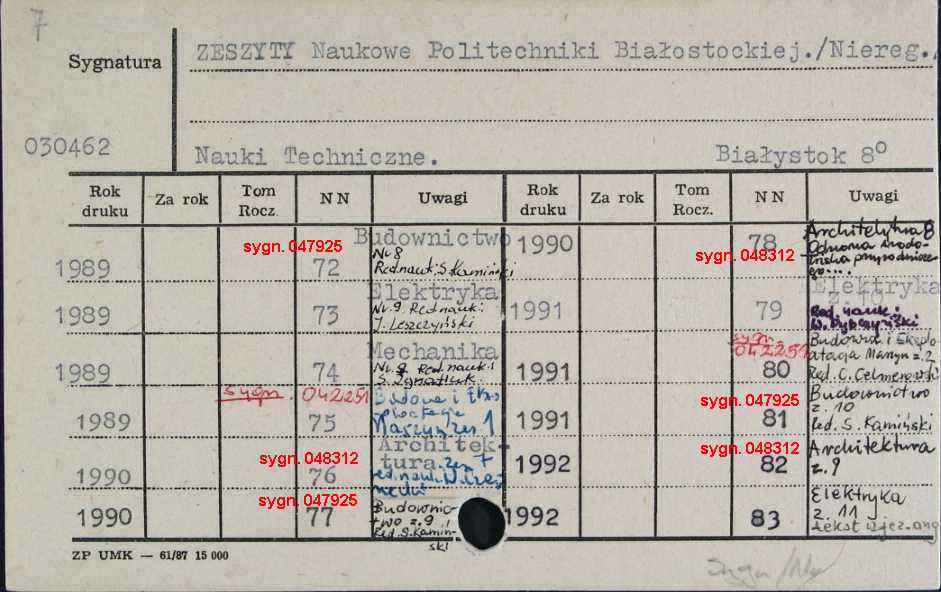 7
Sygnatura
ZESZYTY Naukowe Politechniki Białostockiej./Niereg./
030462
Nauki Techniczne. Białystok 8°
Rok druku Za rok Tom Rocz. NN Uwagi Rok druku Za rok Tom Rocz. NN Uwagi
sygn. 047925 Budownictwo
1989 72 Nr 8
Red. nauk. S. Kamiński
Elektryka
1989 73 Nr. 9. Red nauk:
J. Leszczyński
Mechanika
1989 74 Nr. 9 Red nauk:
sygn. 042251 Budowa i
1989 75 Maszyn zesz. 1
Architek-
sygn. 048312 tura. zesz. 7
1990 76 red. nauk. W.
sygn. 047925
1990 77 Budownic-
two z. 9
Red. S. Kamiń-
ski
1990 78 Architektura 8
sygn. 048312
Elektryka
z. 10
1991 79 Red. nauk:
sygn. 042251 Budowa i Eksplo-
atacja Maszyn z. 2
1991 80 Red. C.
sygn. 047925 Budownictwo
z. 10
1991 81 Red. S. Kamiński
sygn. 048312 Architektura
1992 82 z. 9
Elektryka
z. 11
1992 83 tekst w jęz. ang
ZP UMK — 61/87 15 000